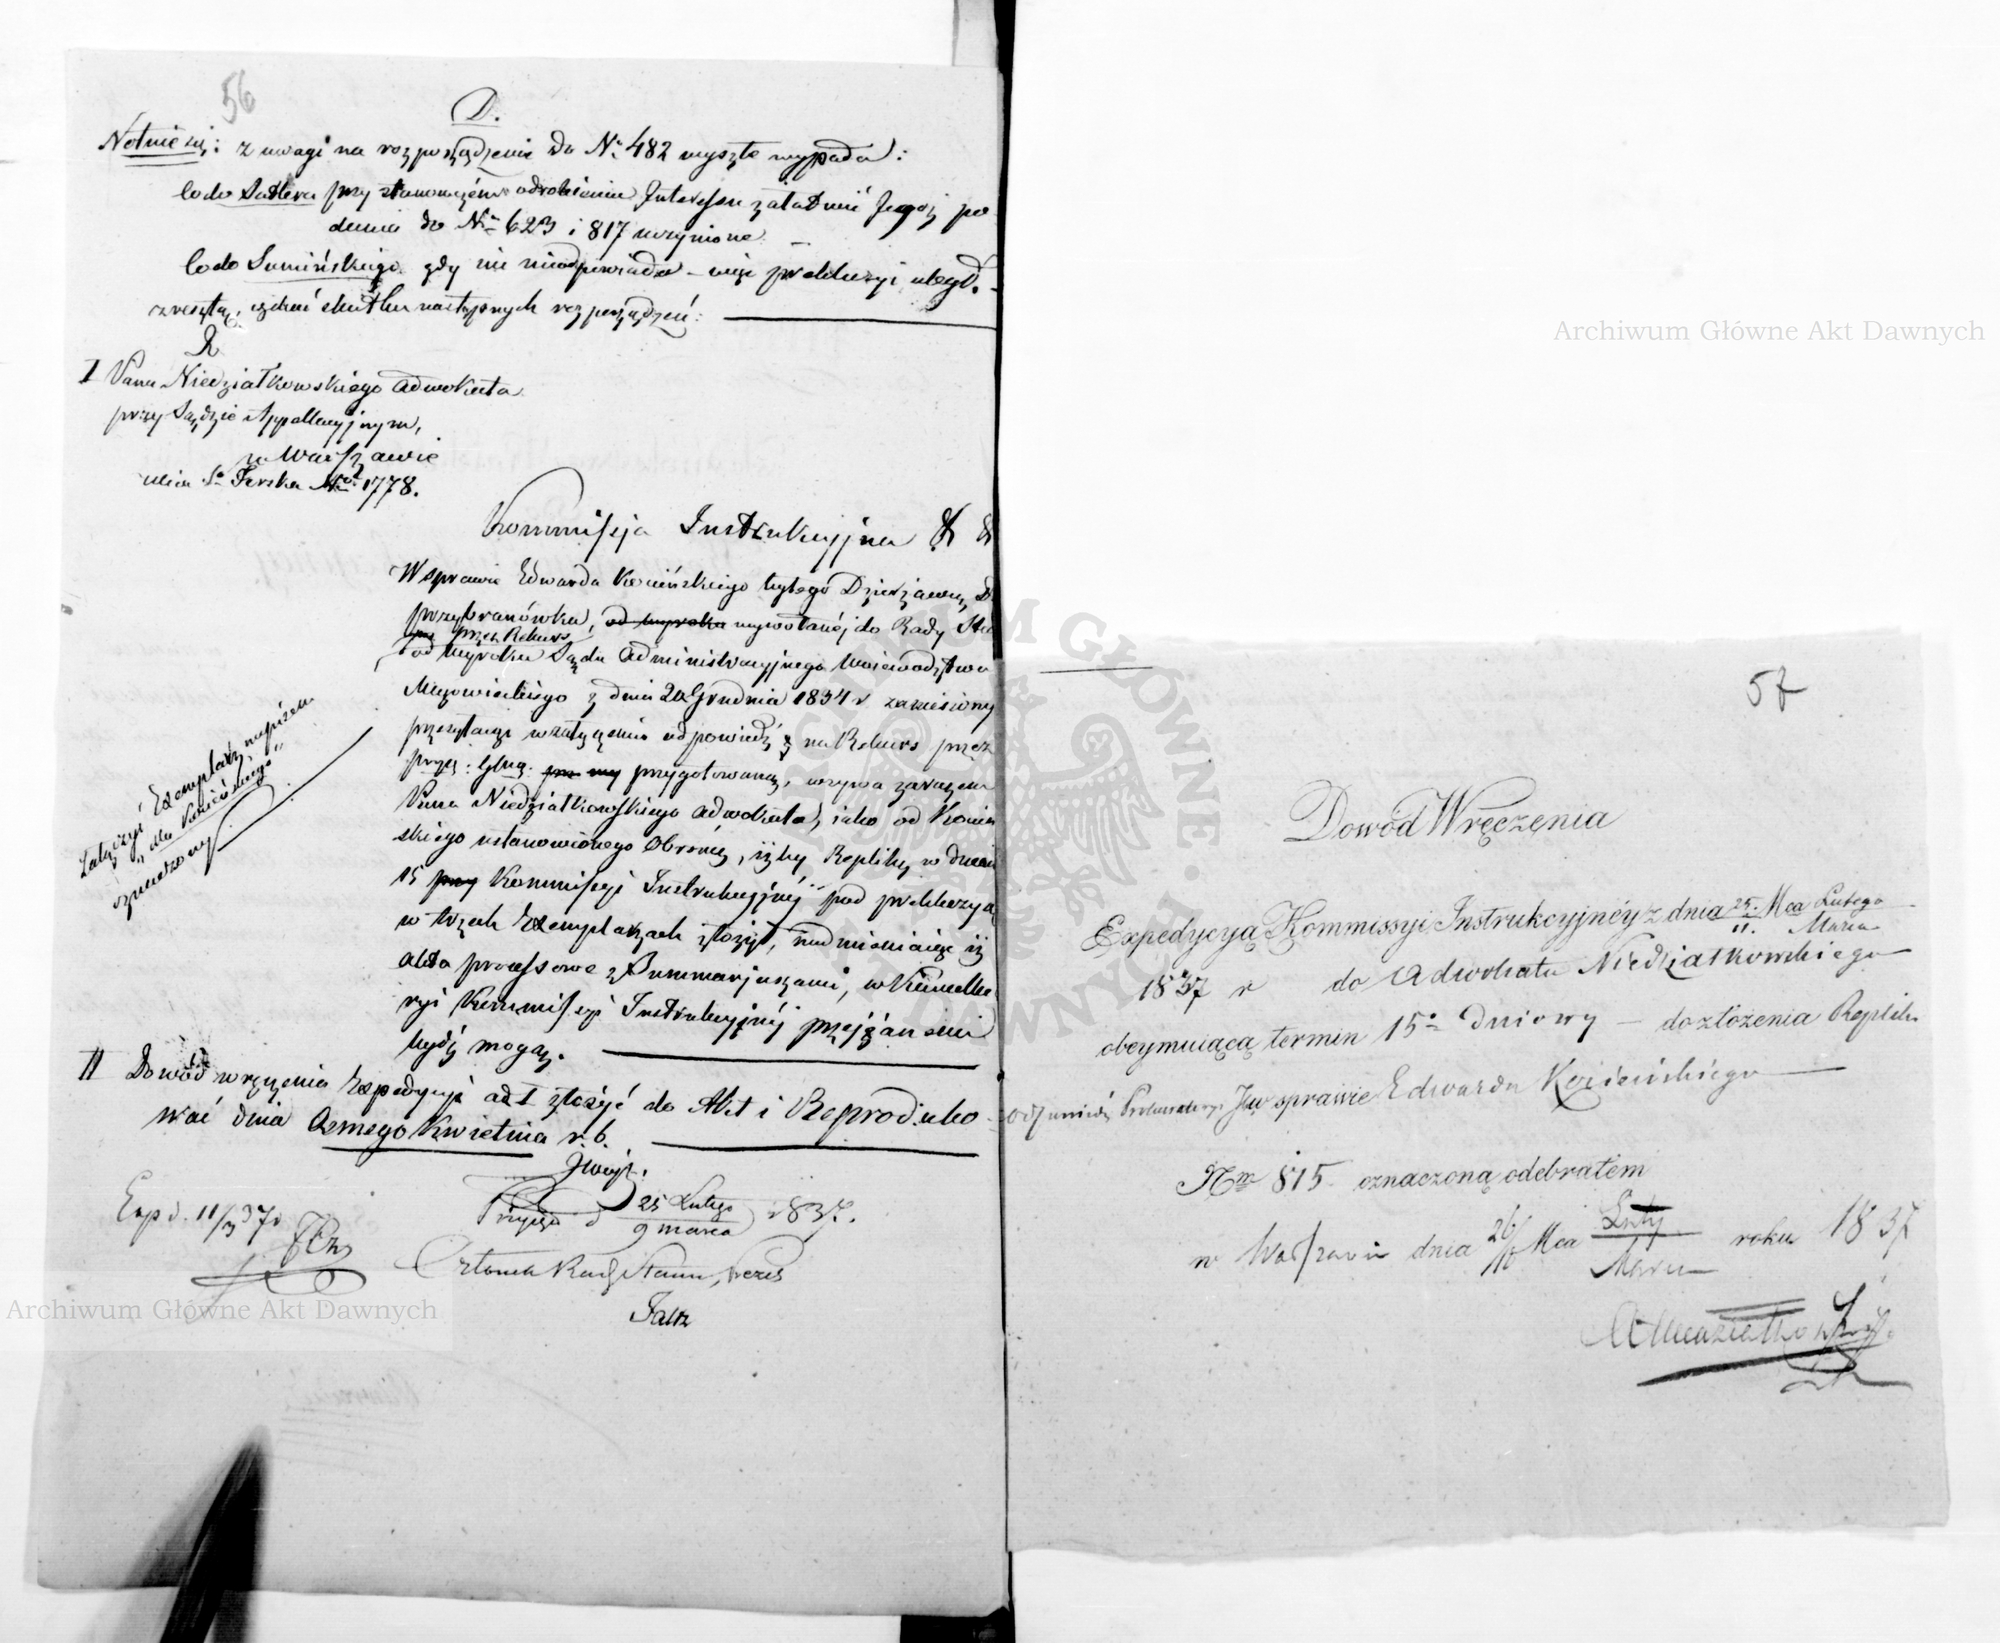 56
D.
Notuię się: z uwagi na rozporządzenie do Nr 482 wyszłe wypada:
co do Sattera przy stanowczém odrobieniu Interessu załatwić Jegoż po
dania do Nr 623 i 817 uczynione. —
co do Sumińskiego gdy nie nieodpowiada – więc prekluzyi uległ. –
zresztą, czekać skutku następnych rozporządzeń:
R
I Pana Niedziałkowskiego Adwokata
przy Sądzie Appellacyjnym,
w Warszawie
ulica Sto Jerska Nro 1778.
Kommissja Instrukcyjna
W sprawie Edwarda Kocieńskiego byłego Dzierżawcy D
przybranówka, od wyroku wywołanéj do Rady Sta
przez Rekurs
od Wyroku Sądu Administracyjnego Województwa
Mazowieckiego z dnia 20 Grudnia 1834 r. zaniesiony
przesyłając w załączeniu odpowiedź na Rekurs przez
przygotowaną, wzywa zarazem
Pana Niedziałkowskiego Adwokata, iako od Kocień
skiego ustanowionego Obrońcę, iżby Replikę w dniach
15 przy Kommissyi Instrukcyjnéj pod prekluzyą
w trzech Exemplarzach złożył, nadmieniaiąc iż
akta processowe z Summarjuszami, w Kancella
ryi Kommissyi Instrukcyjnéj przejżanemi
bydź mogą.
Załączyć Exemplarz, napisem
„dla Kocieńskiego"
opatrzony
II Dowód wręczenia Expedycyi ad I złożyć do Akt i Reproduko
wać dnia Osmego Kwietnia r. b.
Exp d. 11/3 37 r
d 25 Lutego 1837.
9 marca
Członek Rady Stanu, Prezes
Falz
57
Dowód Wręczenia
Expedycyą Kommissyi Instrukcyjnéy z dnia 25. Mca Lutego
11. Marca
1837 r do Adwokata Niedziałkowskiego
obeymuiącą termin 15o Dniowy — do złożenia Replik
odpowiedź Prokuratoryi J w sprawie Edwarda Kocieńskiego
Nrm 815 oznaczoną odebrałem
w Warszawie dnia 26/10 Mca Luty roku 1837
Marca
Niedziałkowski
Archiwum Główne Akt Dawnych
Archiwum Główne Akt Dawnych
ARCHIWUM GŁÓWNE AKT DAWNYCH